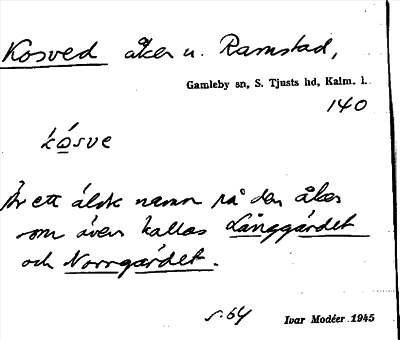 Kosved åker u. Ramstad,
Gamleby sn, S. Tjusts hd, Kalm. l.
140
kósve
Är ett äldre namn på den åker
som även kallas Långgärdet
och Norrgärdet.
s. 64 Ivar Modéer 1945